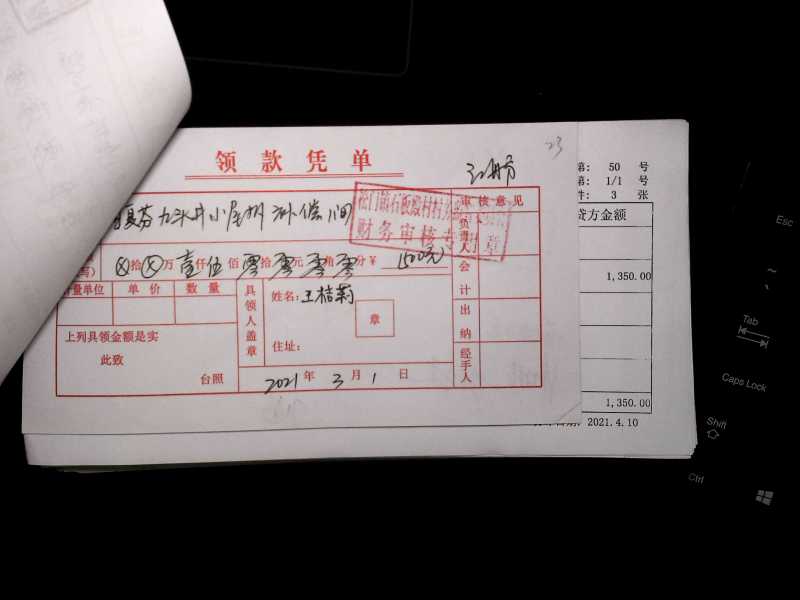 23
领款凭单
审核意见
负责人
财务审核专用章
补偿
拾 万 壹仟伍佰零拾零元零角零分 ¥ 1500元
量单位 单价 数量
具领人盖章
姓名:王桔莉
章
住址:
会计
出纳
经手人
上列具领金额是实
此致
台照
2021年3月1日
第: 50 号
第: 1/1 号
件: 3 张
贷方金额
1,350.00
1,350.00
2021.4.10
Esc
Tab
Caps Lock
Shift
Ctrl